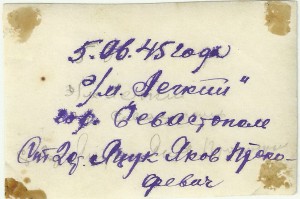 5.06.45 года
э/м. „Легкий"
гор. Севастополь
Ст 2 ст. Яцук Яков Проко-
фьевич